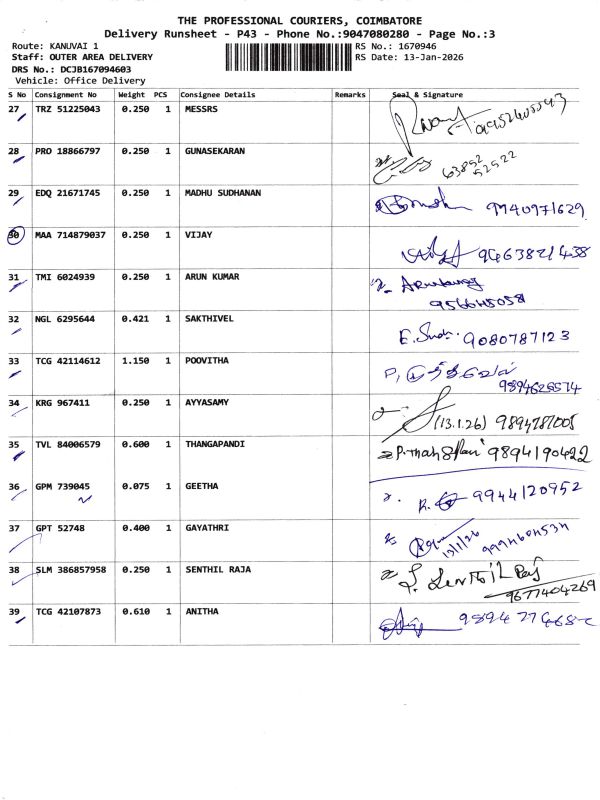 THE PROFESSIONAL COURIERS, COIMBATORE
Delivery Runsheet - P43 - Phone No.:9047080280 - Page No.:3
Route: KANUVAI 1 RS No.: 1670946
Staff: OUTER AREA DELIVERY RS Date: 13-Jan-2026
DRS No.: DCJB167094603
Vehicle: Office Delivery
S No Consignment No Weight PCS Consignee Details Remarks Seal & Signature
27 TRZ 51225043 0.250 1 MESSRS 9952605593
28 PRO 18866797 0.250 1 GUNASEKARAN 63852
52522
29 EDQ 21671745 0.250 1 MADHU SUDHANAN 9940971629
30 MAA 714879037 0.250 1 VIJAY 9463821438
31 TMI 6024939 0.250 1 ARUN KUMAR
32 NGL 6295644 0.421 1 SAKTHIVEL 9080787123
33 TCG 42114612 1.150 1 POOVITHA
9894628574
34 KRG 967411 0.250 1 AYYASAMY (13.1.26) 9894787005
35 TVL 84006579 0.600 1 THANGAPANDI 9894190422
36 GPM 739045 0.075 1 GEETHA 9944120952
37 GPT 52748 0.400 1 GAYATHRI 13/1/26
38 SLM 386857958 0.250 1 SENTHIL RAJA
9677404269
39 TCG 42107873 0.610 1 ANITHA